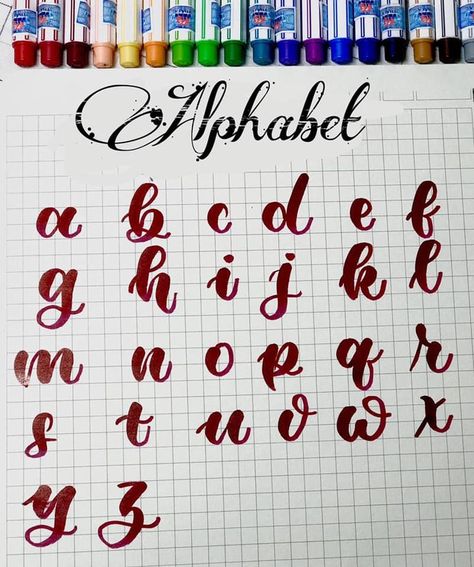 Alphabet
a b c d e f
g h i j k l
m n o p q r
s t u v w x
y z